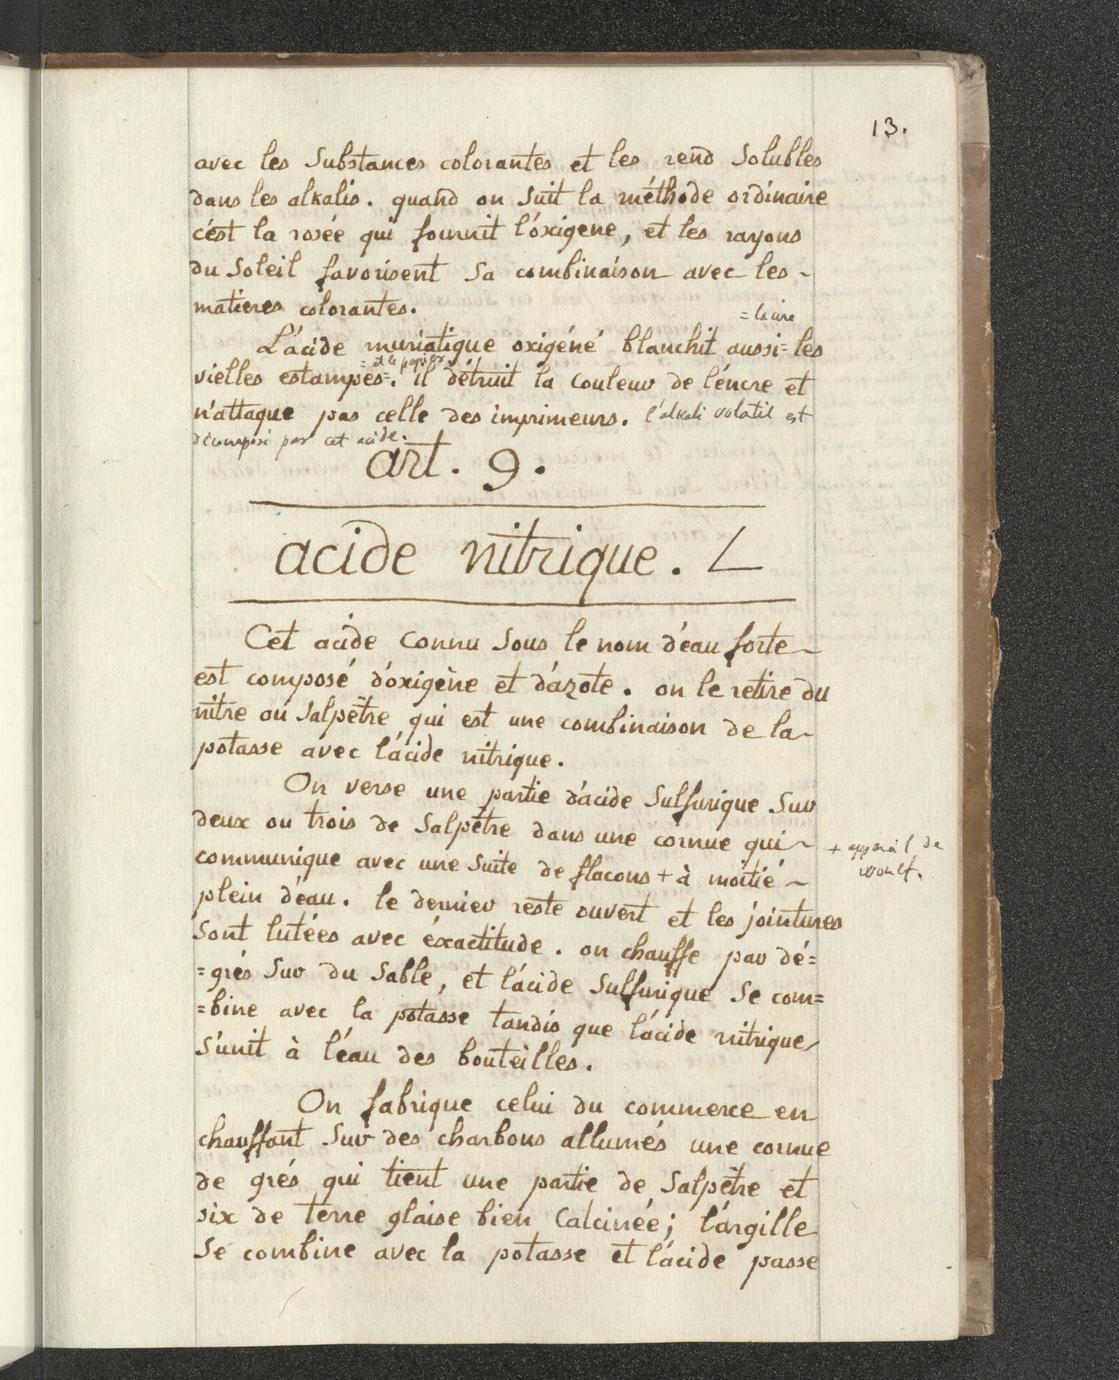 13.
avec les Substances colorantes et les rend Solubles
dans les alkalis. quand on Suit la méthode ordinaire
c'est la rosée qui fournit l'óxigene, et les rayons
du Soleil favorisent Sa combinaison avec les
matieres colorantes.
= la cire
L'ácide muriatique oxigéné blanchit aussi = les
= et le papier
vielles estampes =. il détruit la Couleur de l'éncre et
n'attaque pas celle des imprimeurs. l'alkali volatil est
décomposé par cet acide.
art. 9.
acide nitrique. L
Cet acide Connu Sous le nom d'eau forte
est composé d'óxigène et d'ázote. on le retire du
nitre ou Salpêtre qui est une combinaison de la
potasse avec l'ácide nitrique.
On verse une partie d'ácide Sulfurique Sur
deux ou trois de Salpêtre dans une cornue qui
+ appareil de
communique avec une Suite de flacons + à moitié
woulf.
plein d'éau. le dernier reste ouvert et les jointures
Sont lutées avec éxactitude. on chauffe par dé=
=grés Sur du Sable, et l'ácide Sulfurique Se com=
=bine avec la potasse tandis que l'ácide nitrique
S'unit à l'éau des bouteilles.
On fabrique celui du commerce en
chauffant Sur des charbons allumés une cornue
de grés qui tient une partie de Salpêtre et
six de terre glaise bien Calcinée; l'árgille
Se combine avec la potasse et l'ácide passe